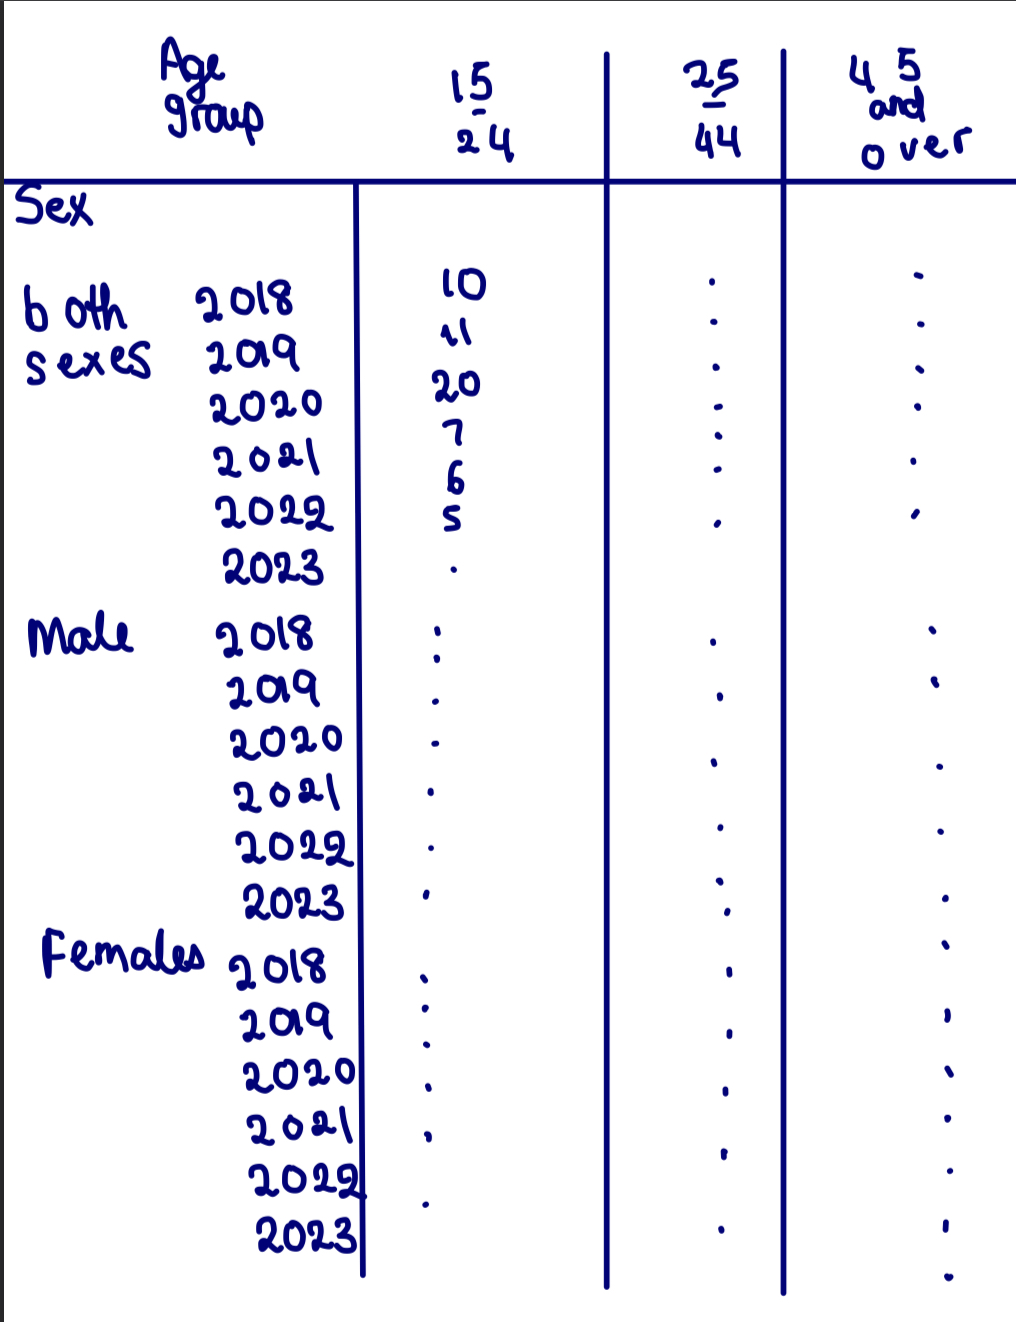 Age group 15 - 24 25 - 44 45 and over
Sex
both sexes 2018 10 . .
2019 11 . .
2020 20 . .
2021 7 . .
2022 6 . .
2023 5 . .
.
Male 2018 . . .
2019 . . .
2020 . . .
2021 . . .
2022 . . .
2023 . . .
Females 2018 . . .
2019 . . .
2020 . . .
2021 . . .
2022 . . .
2023 . . .